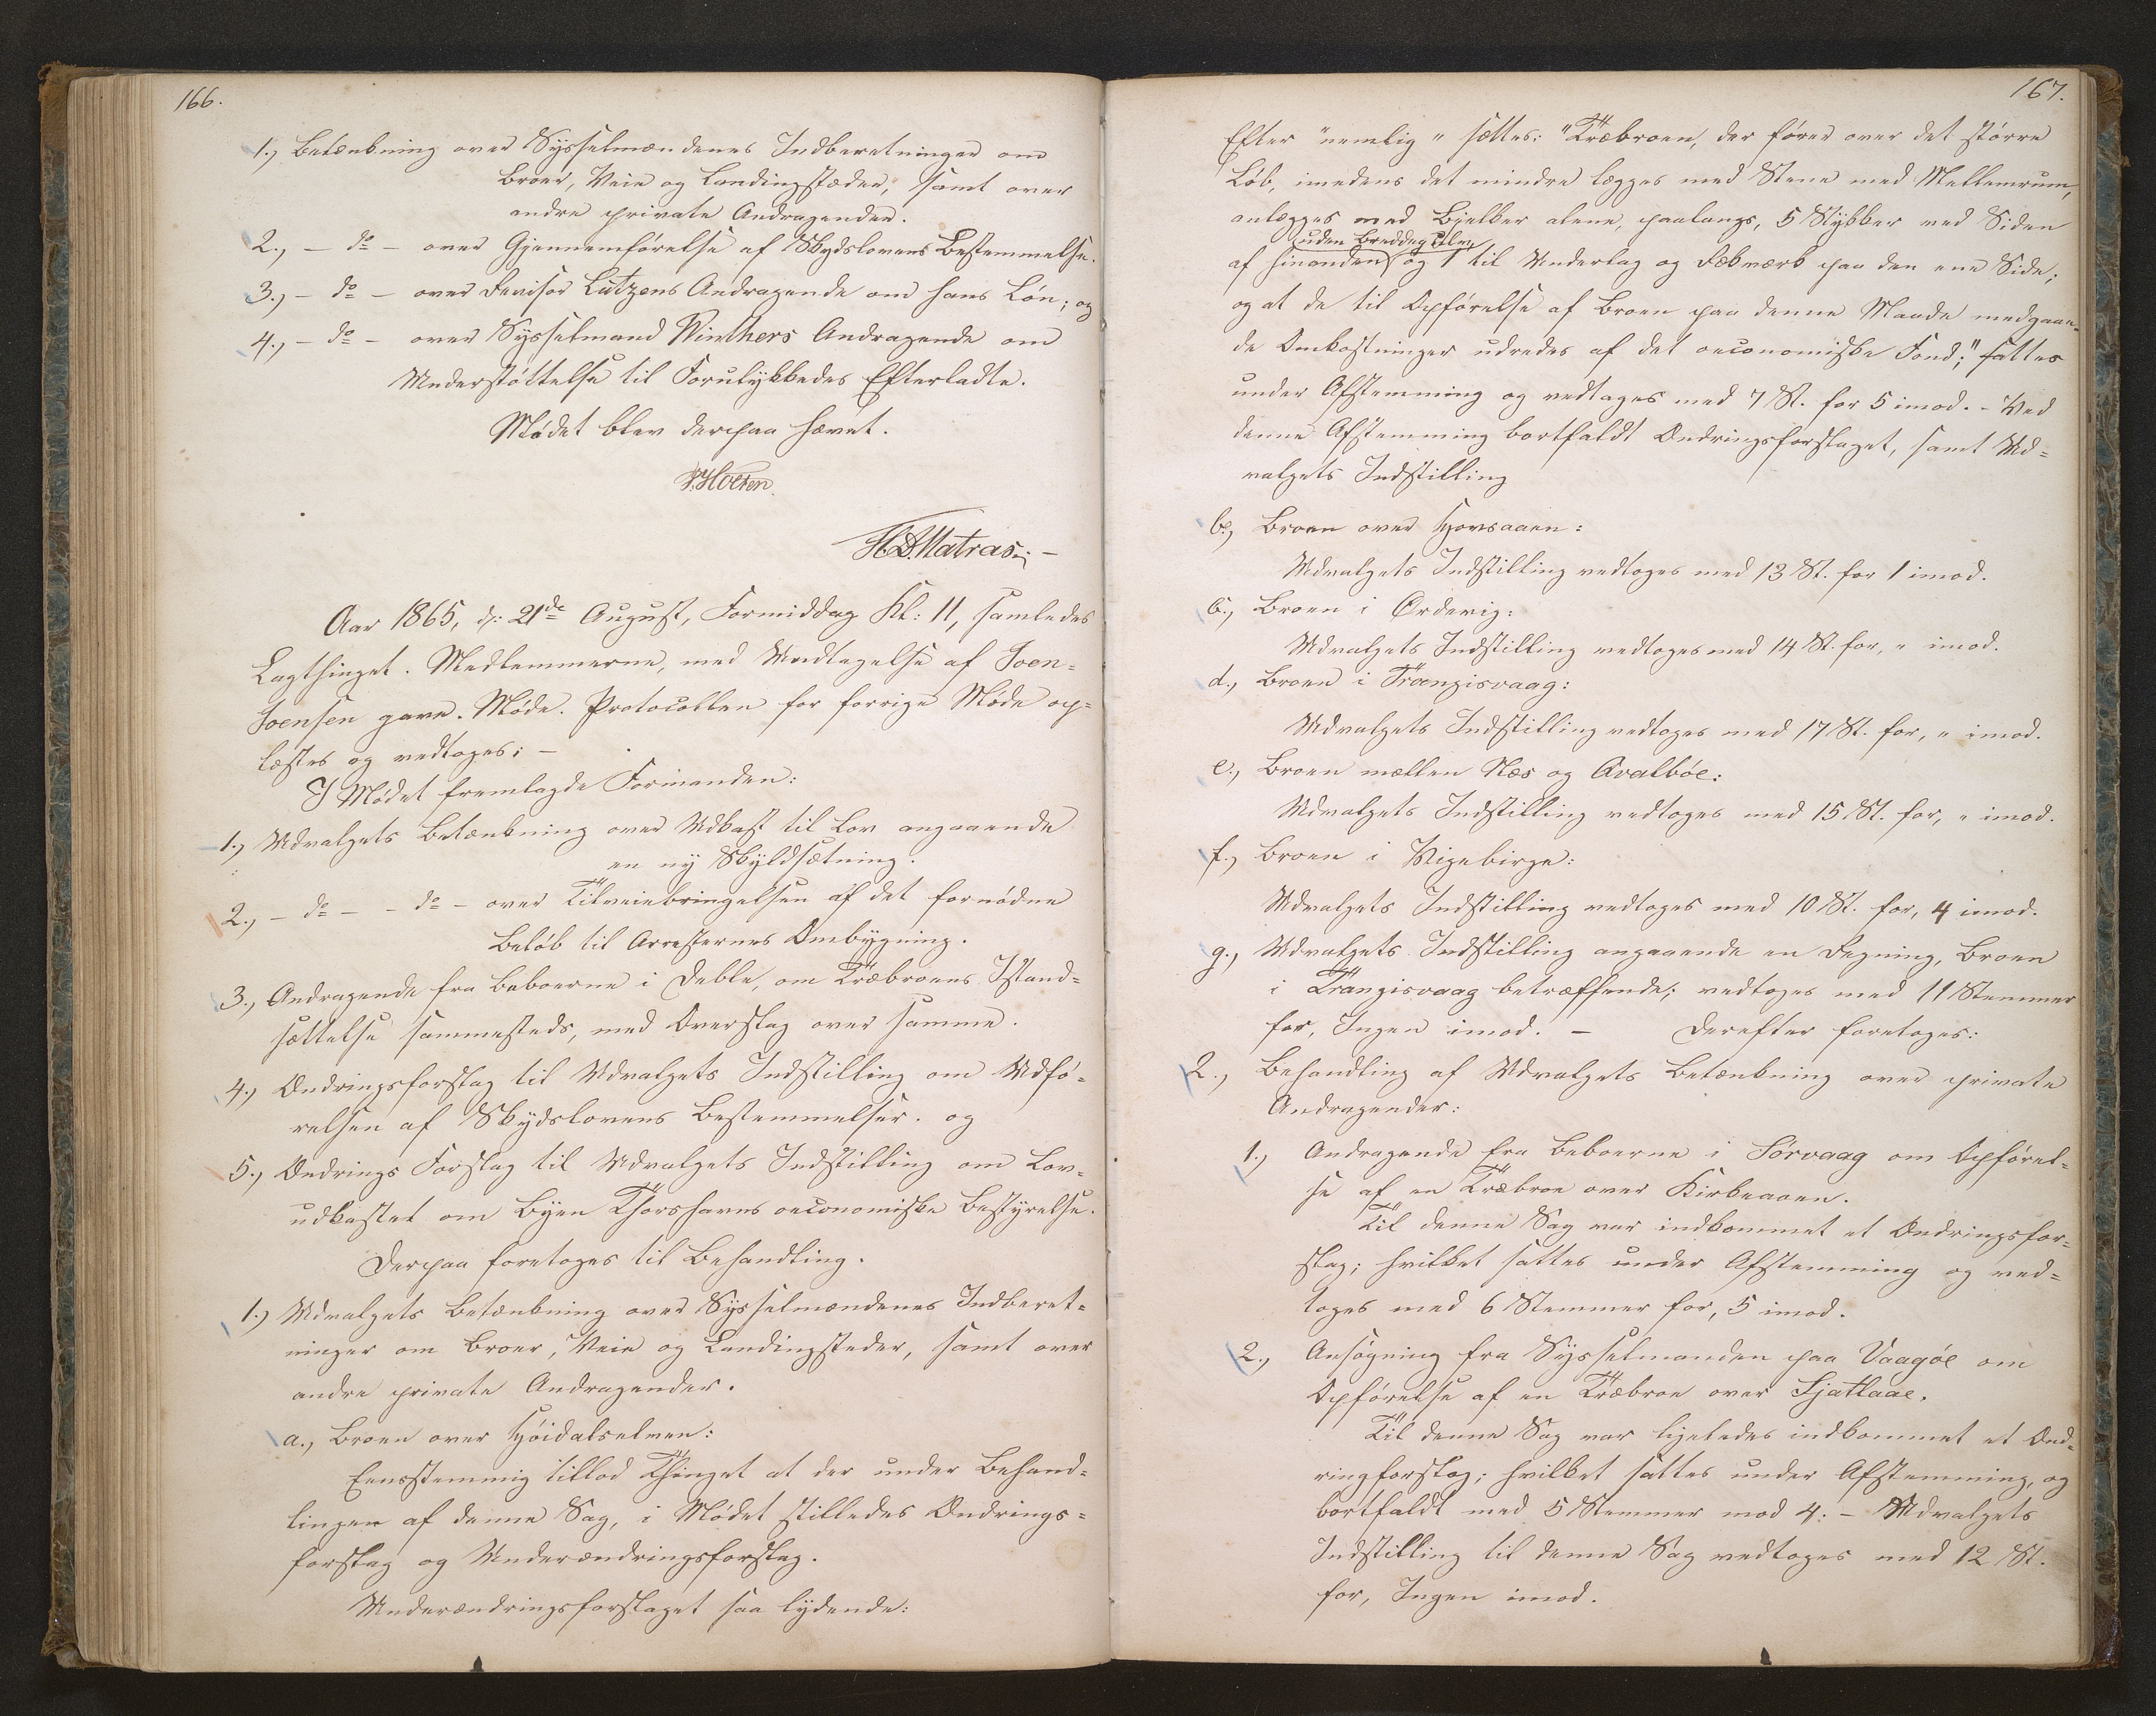 166.
1., Betænkning over Sysselmændenes Indberetninger om
Broer, Veie og Landingstæder, samt over
andre private Andragender.
2., – do – over Gjennemførelse af Skydslovens Bestemmelse.
3., – do – over Revisor Lützens Andragende om hans Løn; og
4., – do – over Sysselmand Winthers Andragende om
Understøttelse til Forulykkedes Efterladte.
Mødet blev derpaa hævet.
H.D. Matras. –
Aar 1865, d: 21de August, Formiddag Kl: 11, samledes
Lagthinget. Medlemmerne, med Undtagelse af Joen-
Joensen gave Møde. Protocollen for forrige Møde op-
læstes og vedtoges: –
I Mødet fremlagde Formanden:
1., Udvalgets Betænkning over Udkast til Lov angaaende
en ny Skyldsætning.
2., – do – – do – over Tilveiebringelsen af det fornødne
Beløb til Arresternes Ombygning.
3., Andragende fra Beboerne i Deble, om Træbroens Istand-
sættelse sammesteds, med Overslag over samme.
4., Ændringsforslag til Udvalgets Indstilling om Udfø-
relsen af Skydslovens Bestemmelser. og
5., Ændrings Forslag til Udvalgets Indstilling om Lov-
udkastet om Byen Thorshavns oeconomiske Bestyrelse.
Derpaa foretoges til Behandling.
1.) Udvalgets Betænkning over Sysselmændenes Indberet-
ninger om Broer, Veie og Landingsteder, samt over
andre private Andragender.
a., Broen over Høidalselven:
Eensstemmig tillod Thinget at der under Behand-
lingen af denne Sag, i Mødet stilledes Ændrings-
forslag og Underændringsforslag.
Underændringsforslaget saa lydende:
167.
Efter "nemlig" sættes: "Træbroen, der fører over det større
Løb, imedens det mindre lægges med Stene med Mellemrum,
anlægges med Bjelker alene, paalangs, 5 Stykker ved Siden
uden Breddegulv,
af hinanden og 1 til Underlag og Rækværk paa den ene Side;
og at de til Opførelse af Broen paa denne Maade medgaaen-
de Omkostninger udredes af det oeconomiske Fond;" sattes
under Afstemming og vedtages med 7 St. for 5 imod. – Ved
denne Afstemming bortfaldt Ændringsforslaget, samt Ud-
valgets Indstilling
b., Broen over Hovsaaen:
Udvalgets Indstilling vedtoges med 13 St. for 1 imod.
c., Broen i Ørdevig:
Udvalgets Indstilling vedtoges med 14 St. for, " imod.
d., Broen i Trangisvaag:
Udvalgets Indstilling vedtoges med 17 St. for, " imod.
e., Broen mellen Næs og Qvalbøe:
Udvalgets Indstilling vedtoges med 15 St. for, " imod.
f., Broen i Vigebirge:
Udvalgets Indstilling vedtoges med 10 St. for, 4 imod.
g., Udvalgets Indstilling angaaende en Regning, Broen
i Trangisvaag betræffende; vedtoges med 11 Stemmer
for, Ingen imod. – Derefter foretoges:
2., Behandling af Udvalgets Betænkning over private
Andragender:
1., Andragende fra Beboerne i Sørvaag om Opførel-
se af en Træbroe over Kirkeaaen.
Til denne Sag var indkommet et Ændringsfor-
slag; hvilket sattes under Afstemming og ved-
toges med 6 Stemmer for, 5 imod.
2., Ansøgning fra Sysselmanden paa Vaagøe om
Opførelse af en Træbroe over Sjatlaae.
Til denne Sag var ligeledes indkommet et Ænd-
ringforslag; hvilket sattes under Afstemming, og
bortfaldt med 5 Stemmer mod 4: – Udvalgets
Indstilling til denne Sag vedtoges med 12 St.
for, Ingen imod.